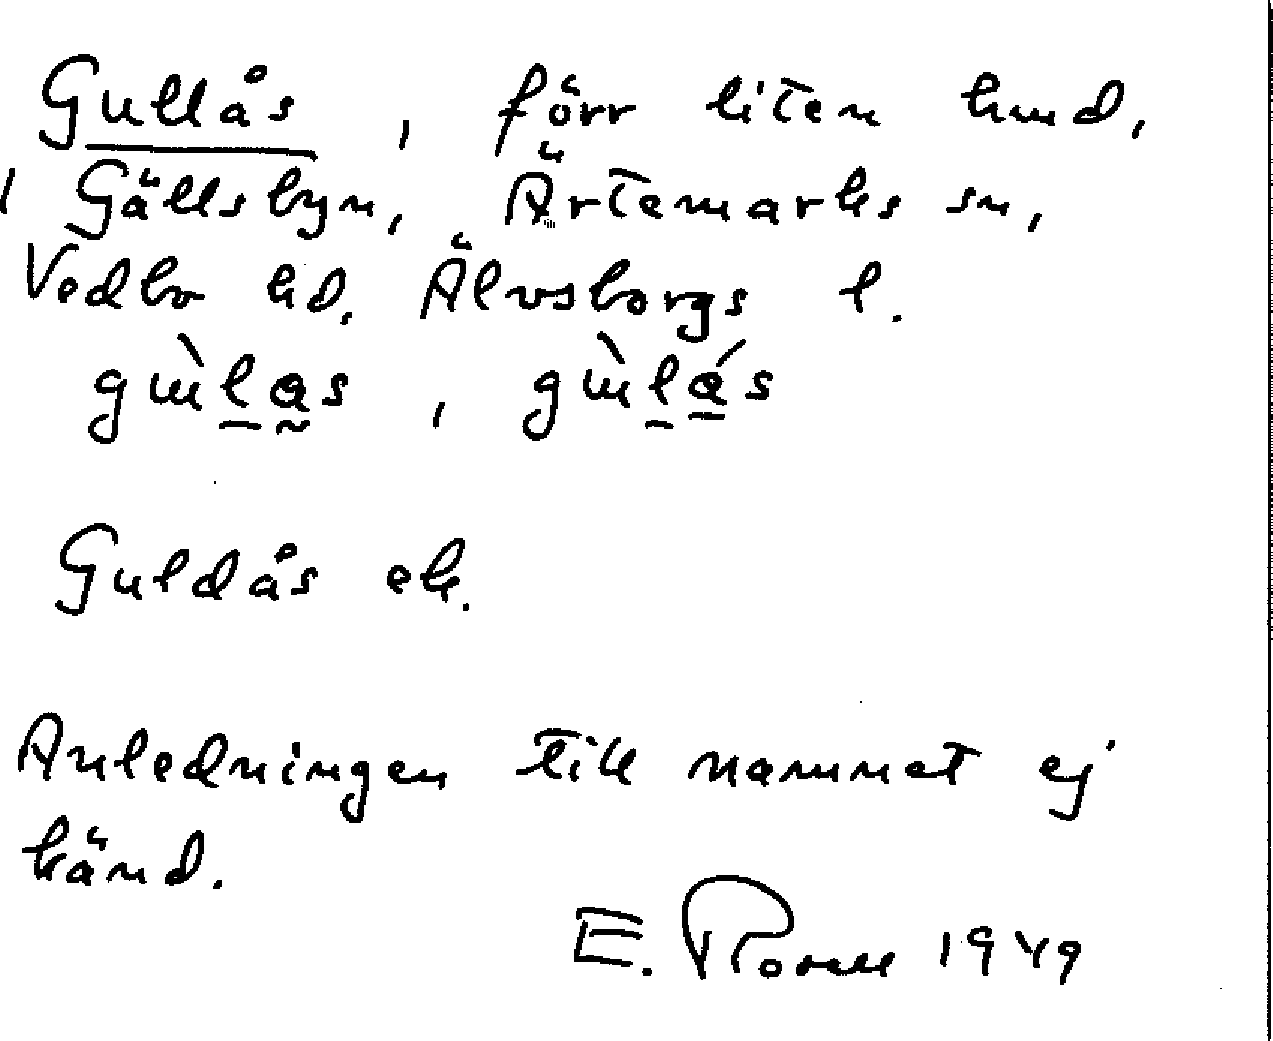 Gullås, förr liten lund,
i Gällsbyn, Ärtemarks sn,
Vedbo hd. Älvsborgs l.
Guldås ek.
Anledningen till namnet ej
känd.
E. 1949